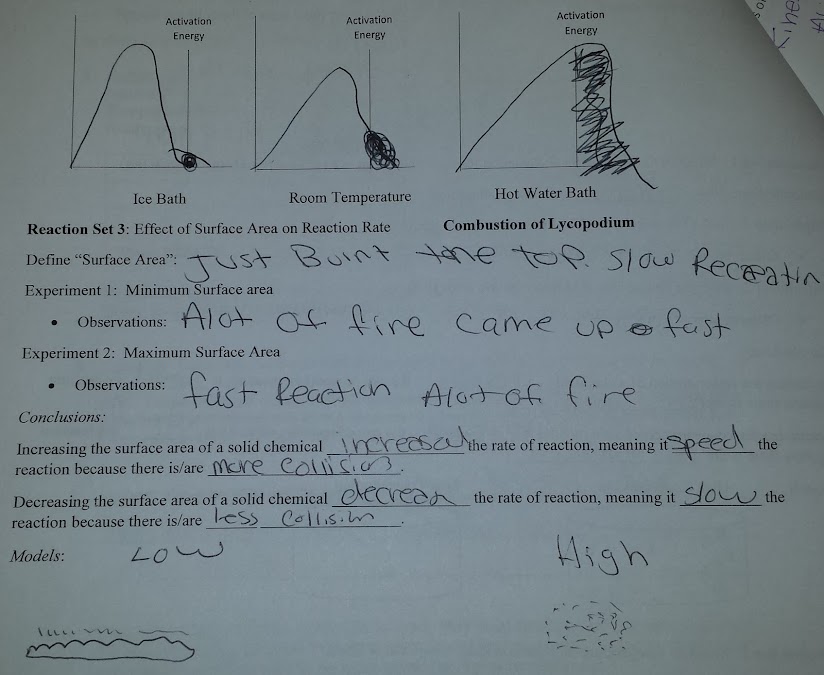 Activation Energy
Activation Energy
Activation Energy
Ice Bath
Room Temperature
Hot Water Bath
Reaction Set 3: Effect of Surface Area on Reaction Rate Combustion of Lycopodium
Define “Surface Area”: Just Burnt the top. Slow
Experiment 1: Minimum Surface area
• Observations: Alot of fire came up fast
Experiment 2: Maximum Surface Area
• Observations: fast Reaction Alot of fire
Conclusions:
Increasing the surface area of a solid chemical the rate of reaction, meaning it speed the
reaction because there is/are more collision.
Decreasing the surface area of a solid chemical the rate of reaction, meaning it slow the
reaction because there is/are less collision.
Models: Low High